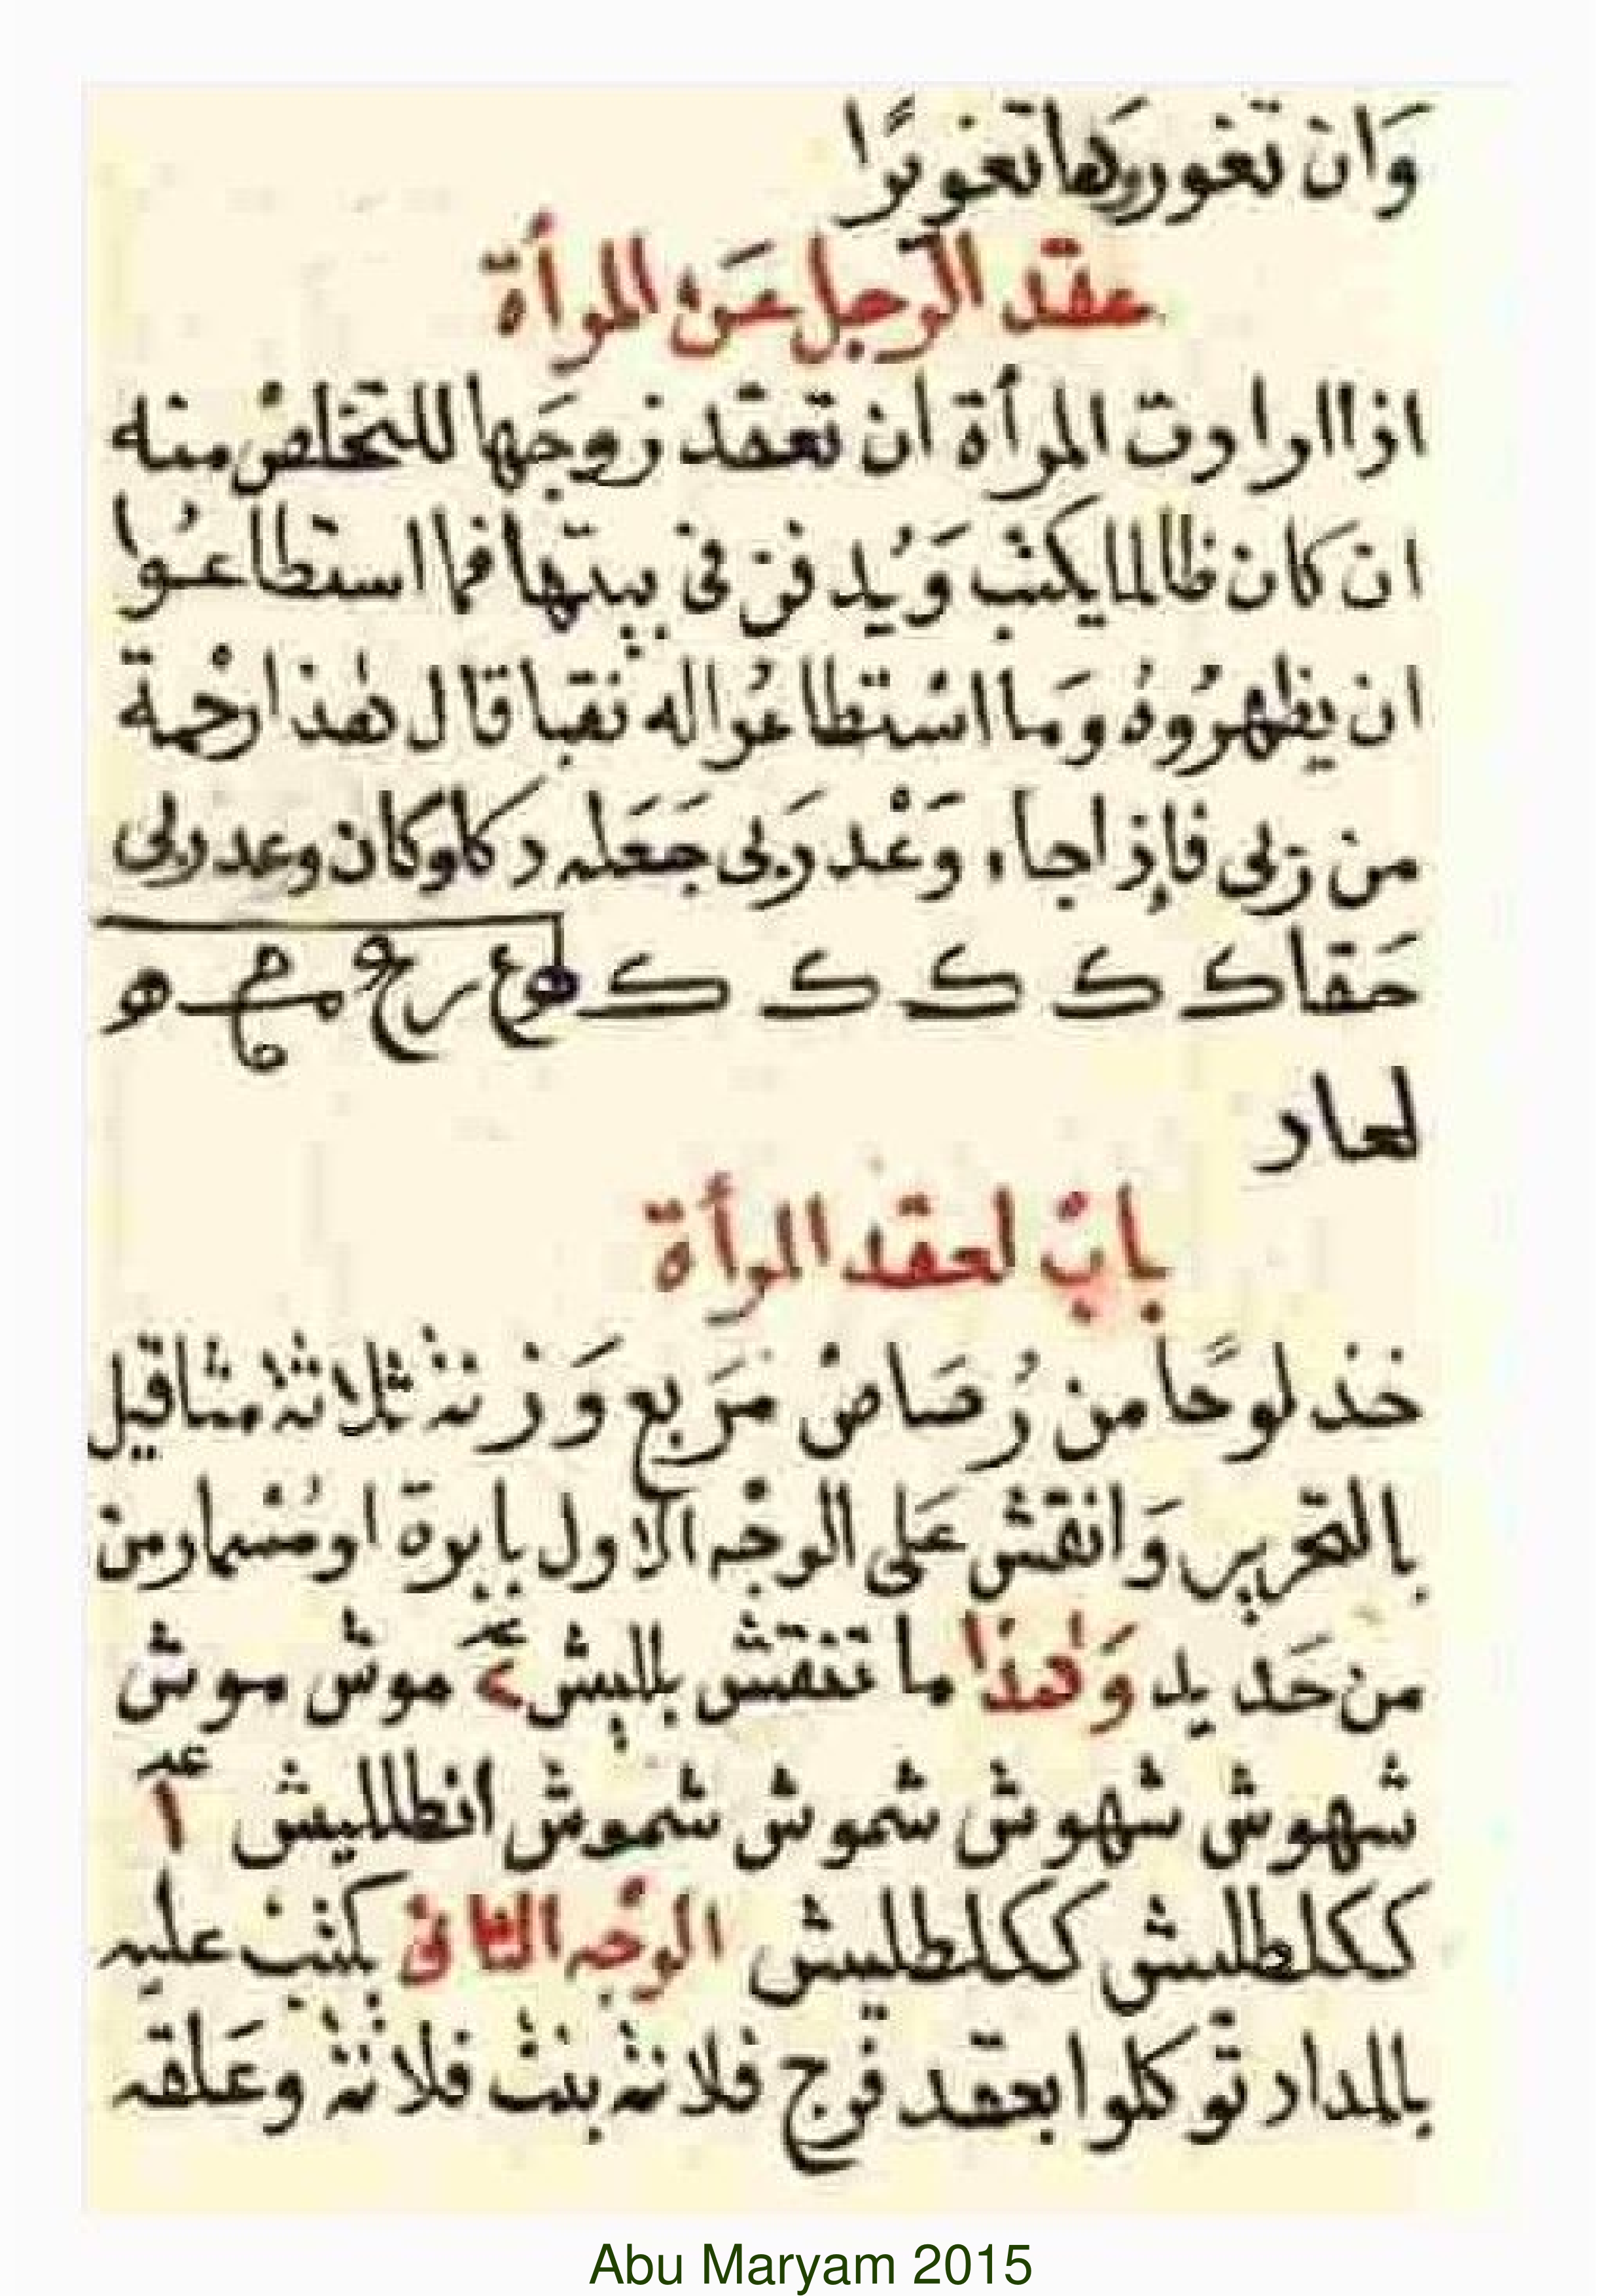 وَان تغوروها تغويرًا
عقد الرجل عَن المرأة
اذا ارادت المرأة ان تعقد زوجَها للتخلصْ منه
ان كان ظالما يكتب وَيُدفن في بيتها فما استطاعُوا
ان يظهرُوهُ وَما اسْتطاعُوا له نقبا قال هٰذا رحْمة
من رَبي فإذا جاء وَعْد رَبي جَعَله دكا وكان وعد ربي
حَقا ك ك ك ك ك
لعار
بابْ لعقد المرأة
خذ لوحًا من رُصَاصْ مَربع وَزْنه ثلاثة مثاقيل
بالتحرير وَانقش عَلى الوجْه الاول بابرة او مُسْمار من
من حَديد وَهٰذا ما تنقش بلليش ٢ موش موش
شهوش شهوش شموش شموش انطلليش أ
ككلطليش ككلطليش الوجْه الثاني كتبْ عليه
بالمدار توكلوا بعقد فرج فلانة بنت فلانة وعَلقه
Abu Maryam 2015